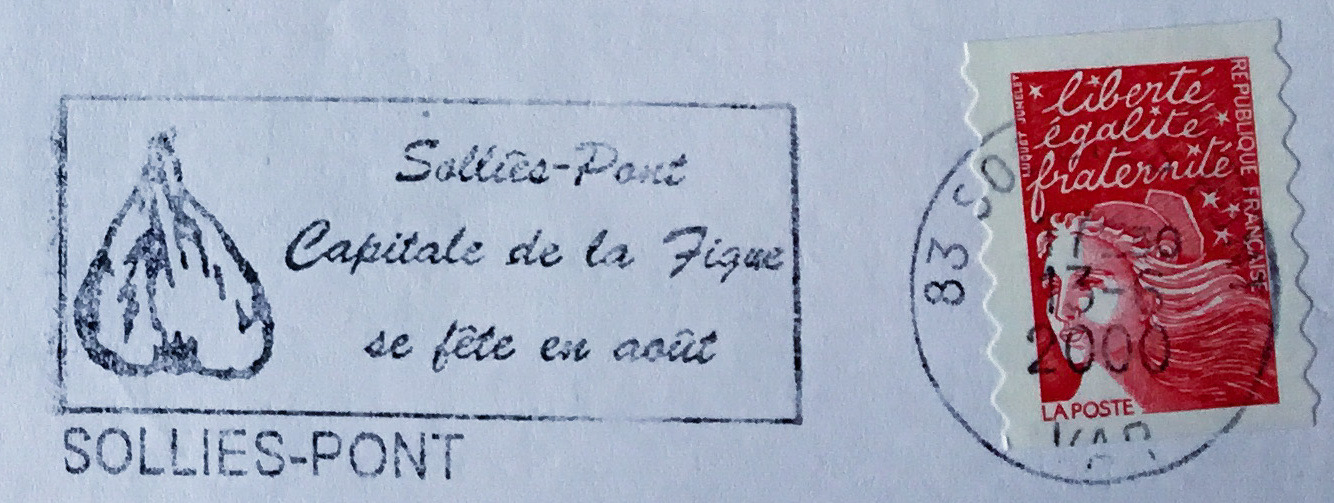 Solliès-Pont
Capitale de la Figue
se fête en août
SOLLIES-PONT
liberté
égalité
fraternité
REPUBLIQUE FRANÇAISE
LUQUET JUMELET
LA POSTE
83 SO
13
2000
VAR